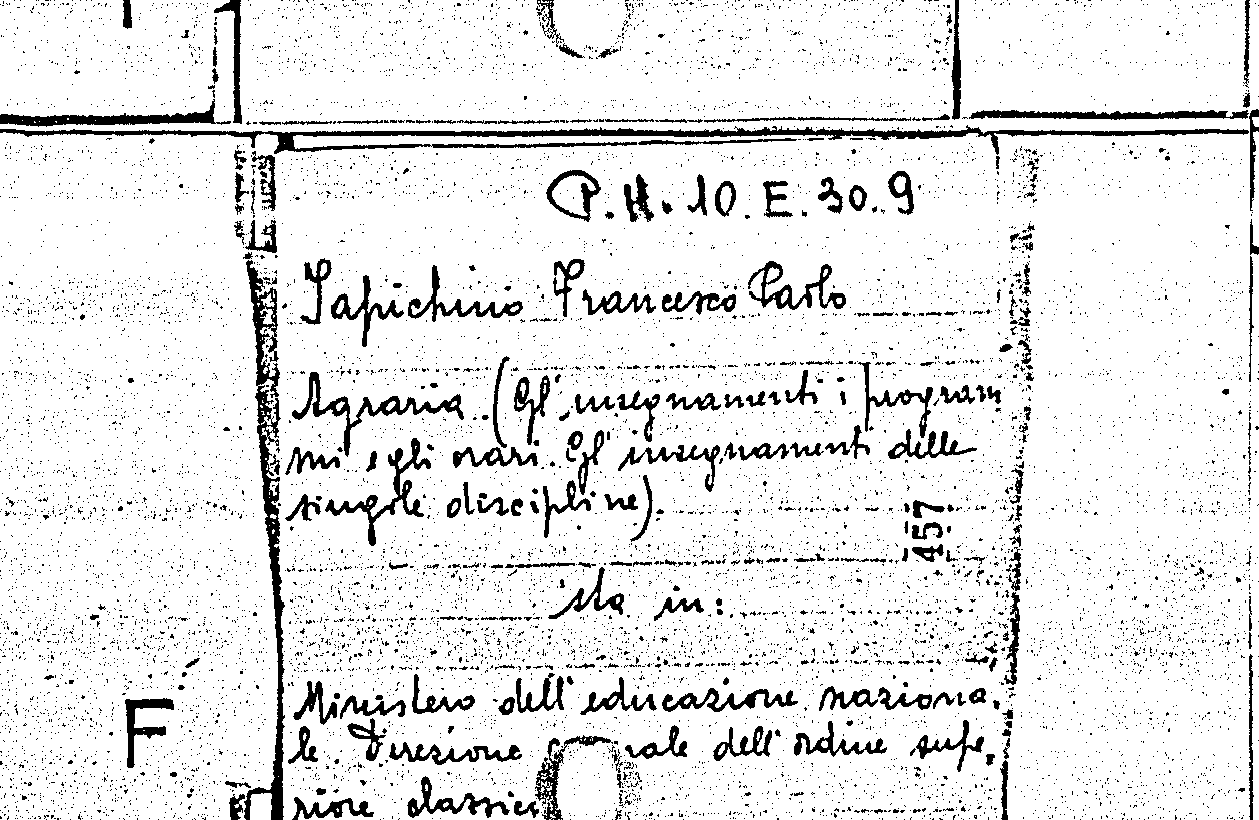 P.H. 10. E. 30. 9
Sapichino Francesco Paolo
Agraria. (Gl' insegnamenti i program
mi e gli orari. Gl' insegnamenti delle
singole discipline).
457
sta in:
Ministero dell' educazione naziona,
le. Direzione dell' ordine supe,
F
riore classico